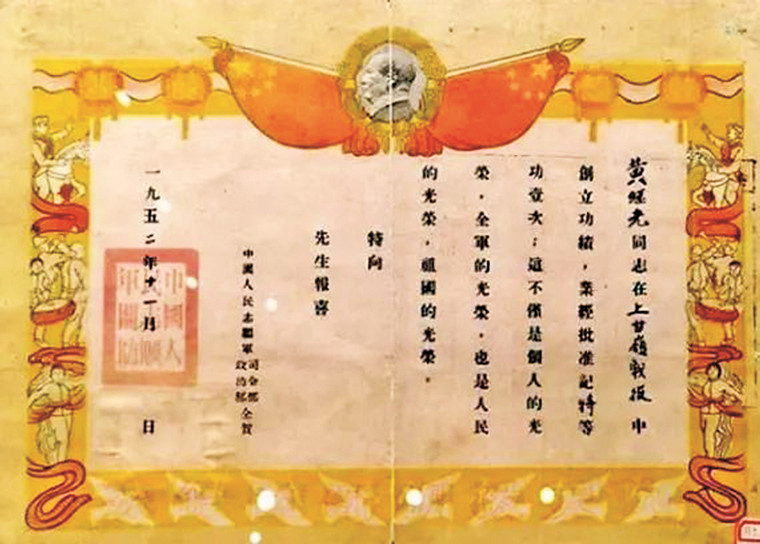 黃繼光同志在上甘嶺戰役中
創立功績，業經批准記特等
功壹次；這不僅是個人的光
榮，全軍的光榮，也是人民
的光榮，祖國的光榮。
特向
先生報喜
中國人民志願軍
司令部
政治部仝賀
一九五二年十一月 日